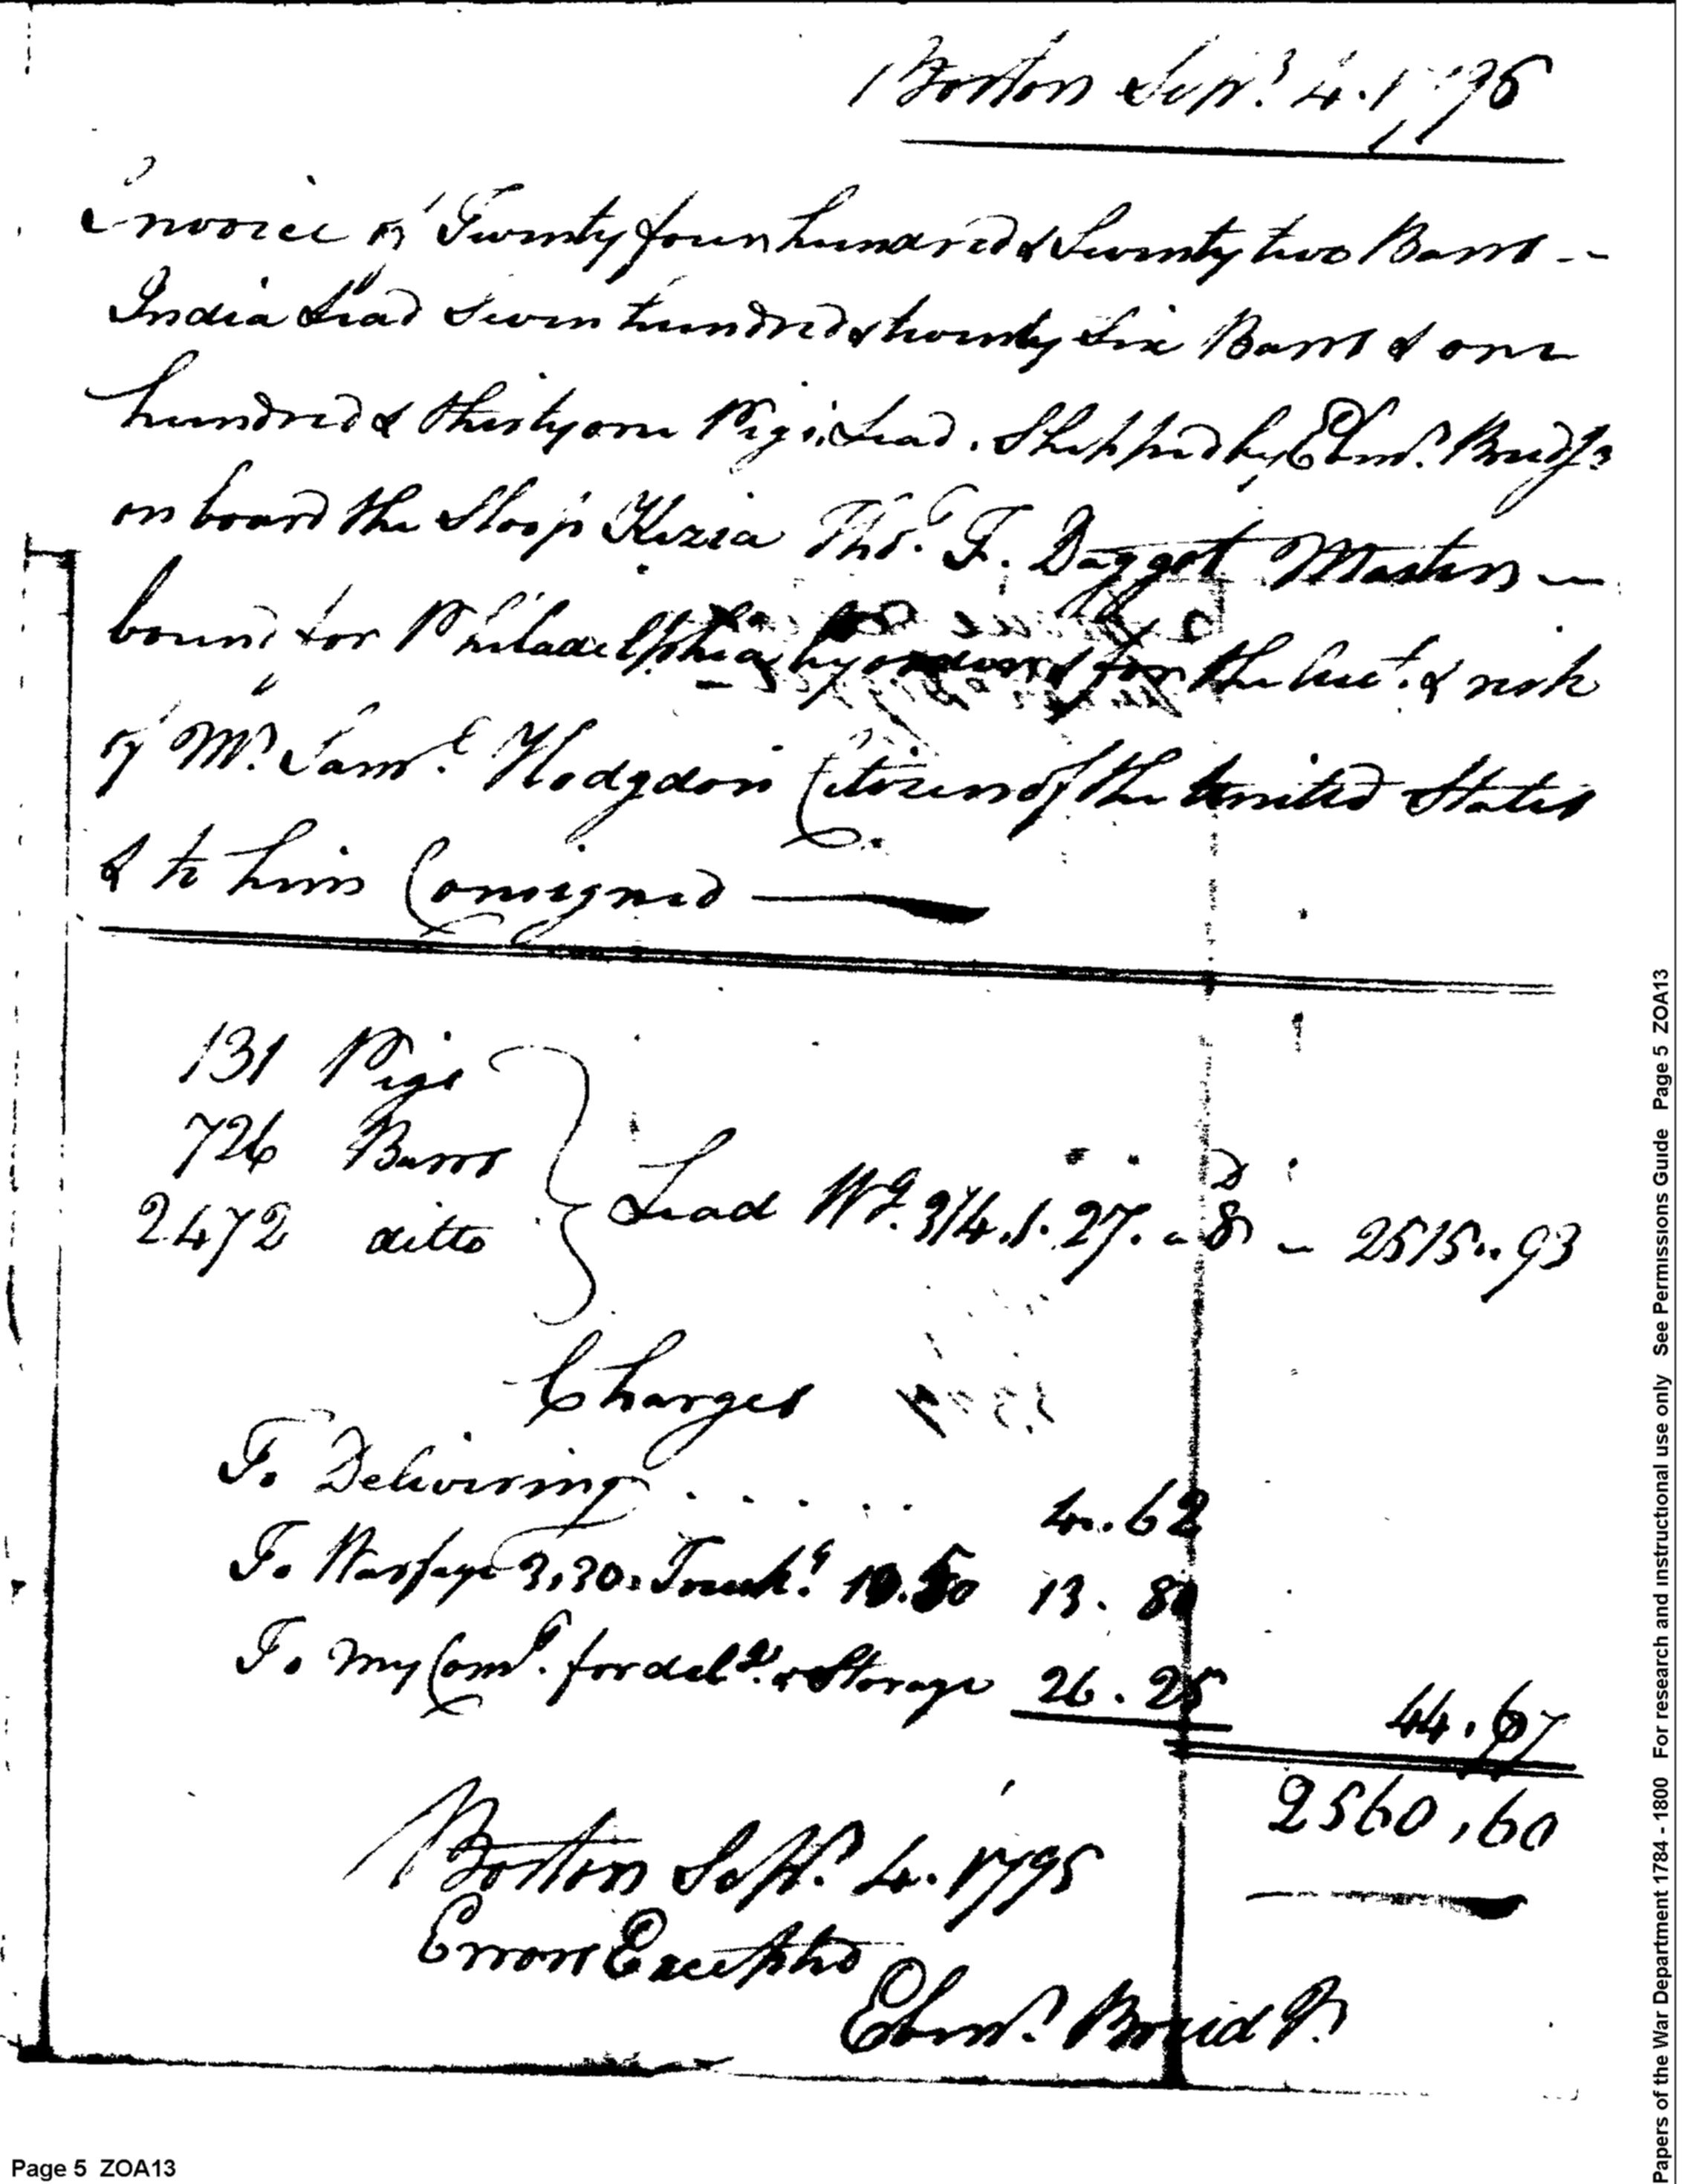 Boston Sepr. 4. 1795
Invoice of Twenty four hundred & Seventy two Barrs -
India Lead Seven hundred & twenty Six Barrs & one
hundred & thirty one Pigs Lead. Shipped by Ebenr. Breed Jr
on board the Sloop Kezia Thos. F. Daggot Master —
bound for Philadelphia by order & for the Acct. & risk
of Mr. Saml. Hodgdon Citizen of the United States
& to him Consigned —
131 Pigs
726 Barrs
2472 ditto
Lead Wt. 314.1.27. a 8D - 2515..93
Charges
To Delivering . . . . . 4..62
To Warfage 3,30. Truckg. 10.50 13.80
To my Comn. for delg. & Storage 26.25
44.67
2560.60
Boston Sepr. 4. 1795
Errors Excepted
Ebenr. Breed Jr
Page 5 ZOA13
Papers of the War Department 1784 - 1800 For research and instructional use only See Permissions Guide Page 5 ZOA13